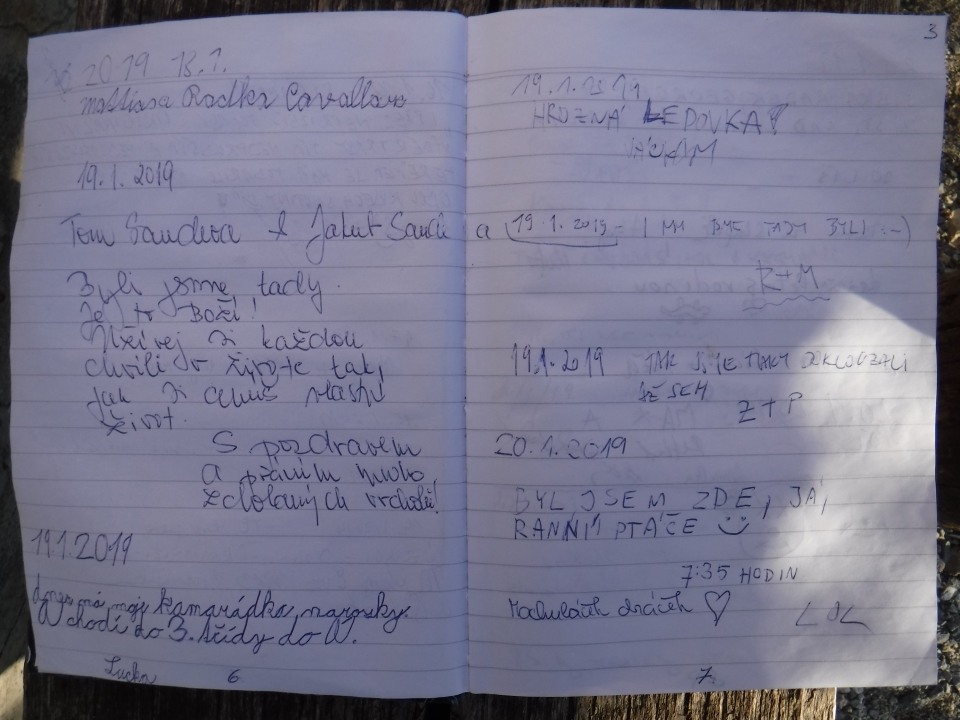 2019 18.1.
Radka
19.1.2019
Tom & Jakub
Byli jsme tady.
Je to Boží!
Užívej si každou
chvíli v životě tak,
jak si ceníš vlastní
život.
S pozdravem
a přáním mnoho
zdolaných vrcholů!
19.1.2019
dnes má moje kamarádka narozky.
A chodí do 3. třídy do A.
Lucka
6
3
19.1.2019
HROZNÁ LEDOVKA!
a (19.1.2019 - I MY TADY BYLI :-)
K+M
19.1.2019 TAK JSME
Z+P
20.1.2019
BYL JSEM ZDE, JÁ,
RANNÍ PTÁČE
7:35 HODIN
dráček LOL
7